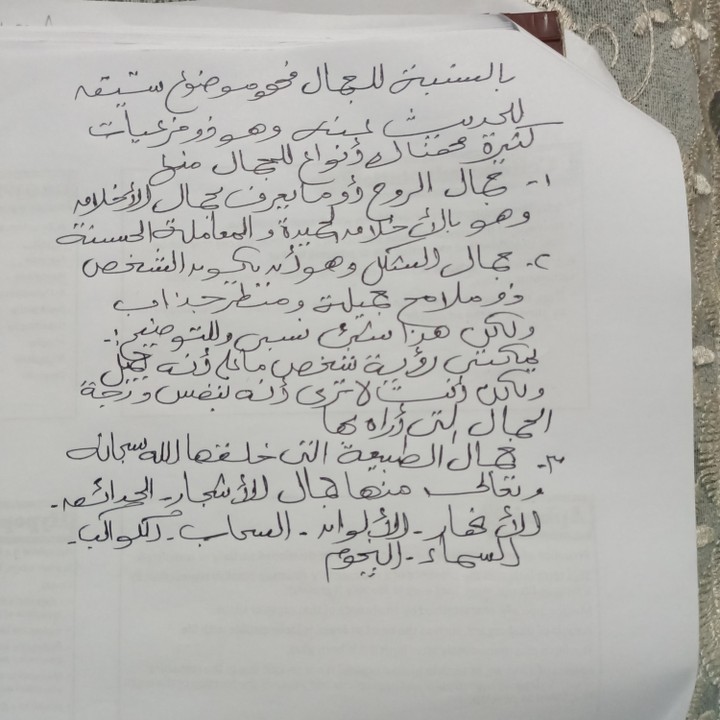 بالنسبة للجمال فهو موضوع شيق
للحديث عنه وهو ذو فرعيات
كثيرة فهناك أنواع للجمال منها
١- جمال الروح أو ما يعرف بجمال الأخلاق
وهو بالأخلاق الحميدة والمعاملة الحسنة
٢- جمال الشكل وهو أن يكون الشخص
ذو ملامح جميلة ومنظر جذاب
ولكن هذا شئ نسبي وللتوضيح:-
يمكنني رؤية شخص ما على أنه جميل
ولكن أنت لا ترى أنه بنفس درجة
الجمال التي أراه بها
٣- جمال الطبيعة التى خلقها الله سبحانه
وتعالى منها جمال الأشجار - الحدائق -
الأنهار - الألوان - السحاب - الكواكب -
السماء - النجوم